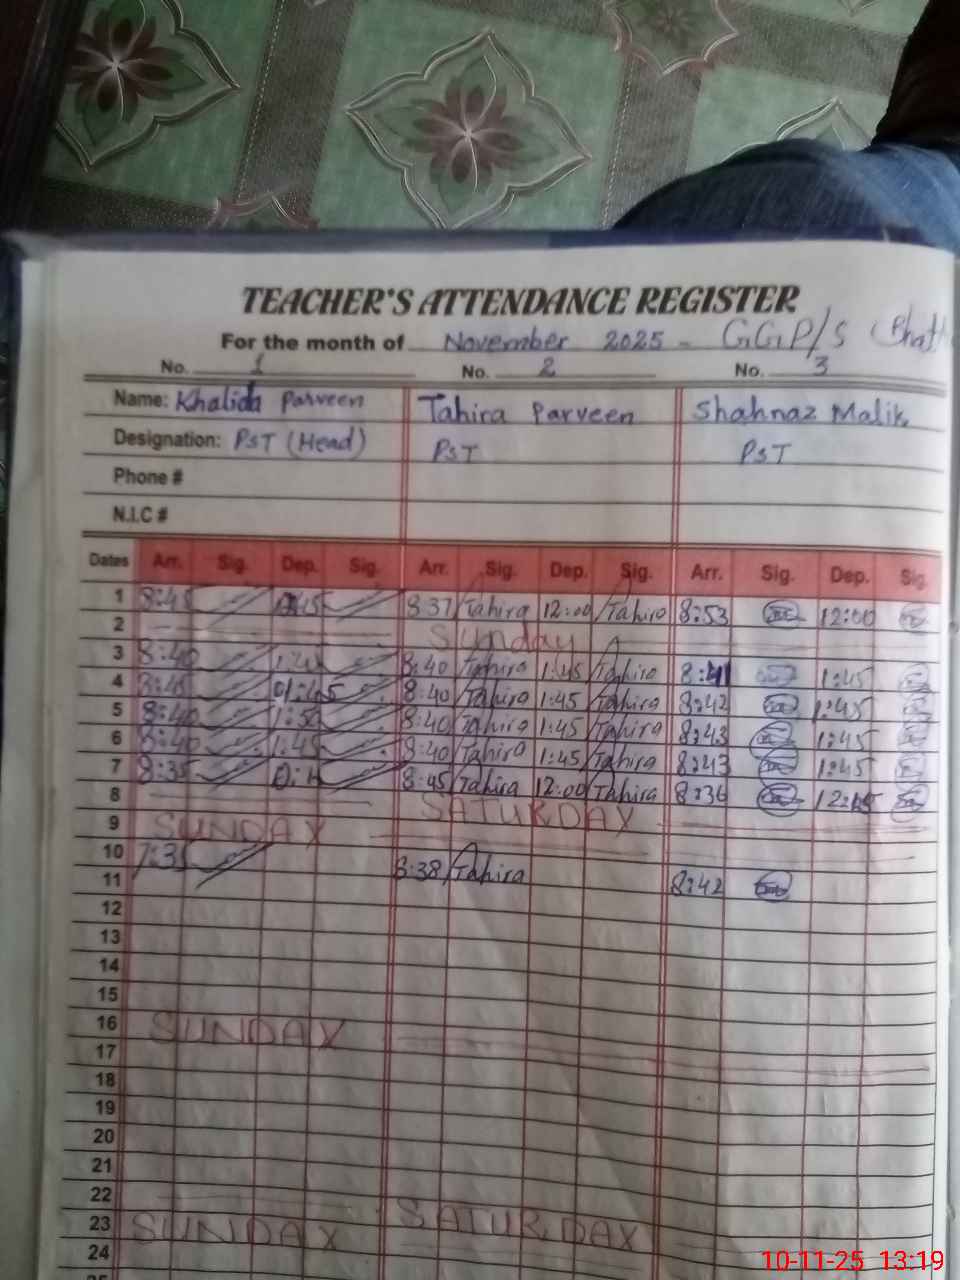 TEACHER'S ATTENDANCE REGISTER
For the month of November 2025 - G.G.P/S (Bhatt
No. 1 No. 2 No. 3
Name: Khalida Parveen Tahira Parveen Shahnaz Malik
Designation: PST (Head) PST PST
Phone #
N.I.C #
Dates Arr. Sig. Dep. Sig. Arr. Sig. Dep. Sig. Arr. Sig. Dep. Sig.
1 8:45 8:37 Tahira 12:00 Tahira 8:53 12:00
2 Sunday
3 8:40 8:40 Tahira 1:45 Tahira 8:41 1:45
4 8:45 01:45 8:40 Tahira 1:45 Tahira 8:42 1:45
5 8:40 1:50 8:40 Tahira 1:45 Tahira 8:43 1:45
6 8:40 1:45 8:40 Tahira 1:45 Tahira 8:43 1:45
7 8:35 8:45 Tahira 12:00 Tahira 8:36
8 SATURDAY
9 SUNDAY
10 8:38 Tahira 8:42
11
12
13
14
15
16 SUNDAY
17
18
19
20
21
22 SATURDAY
23 SUNDAY
24
10-11-25 13:19